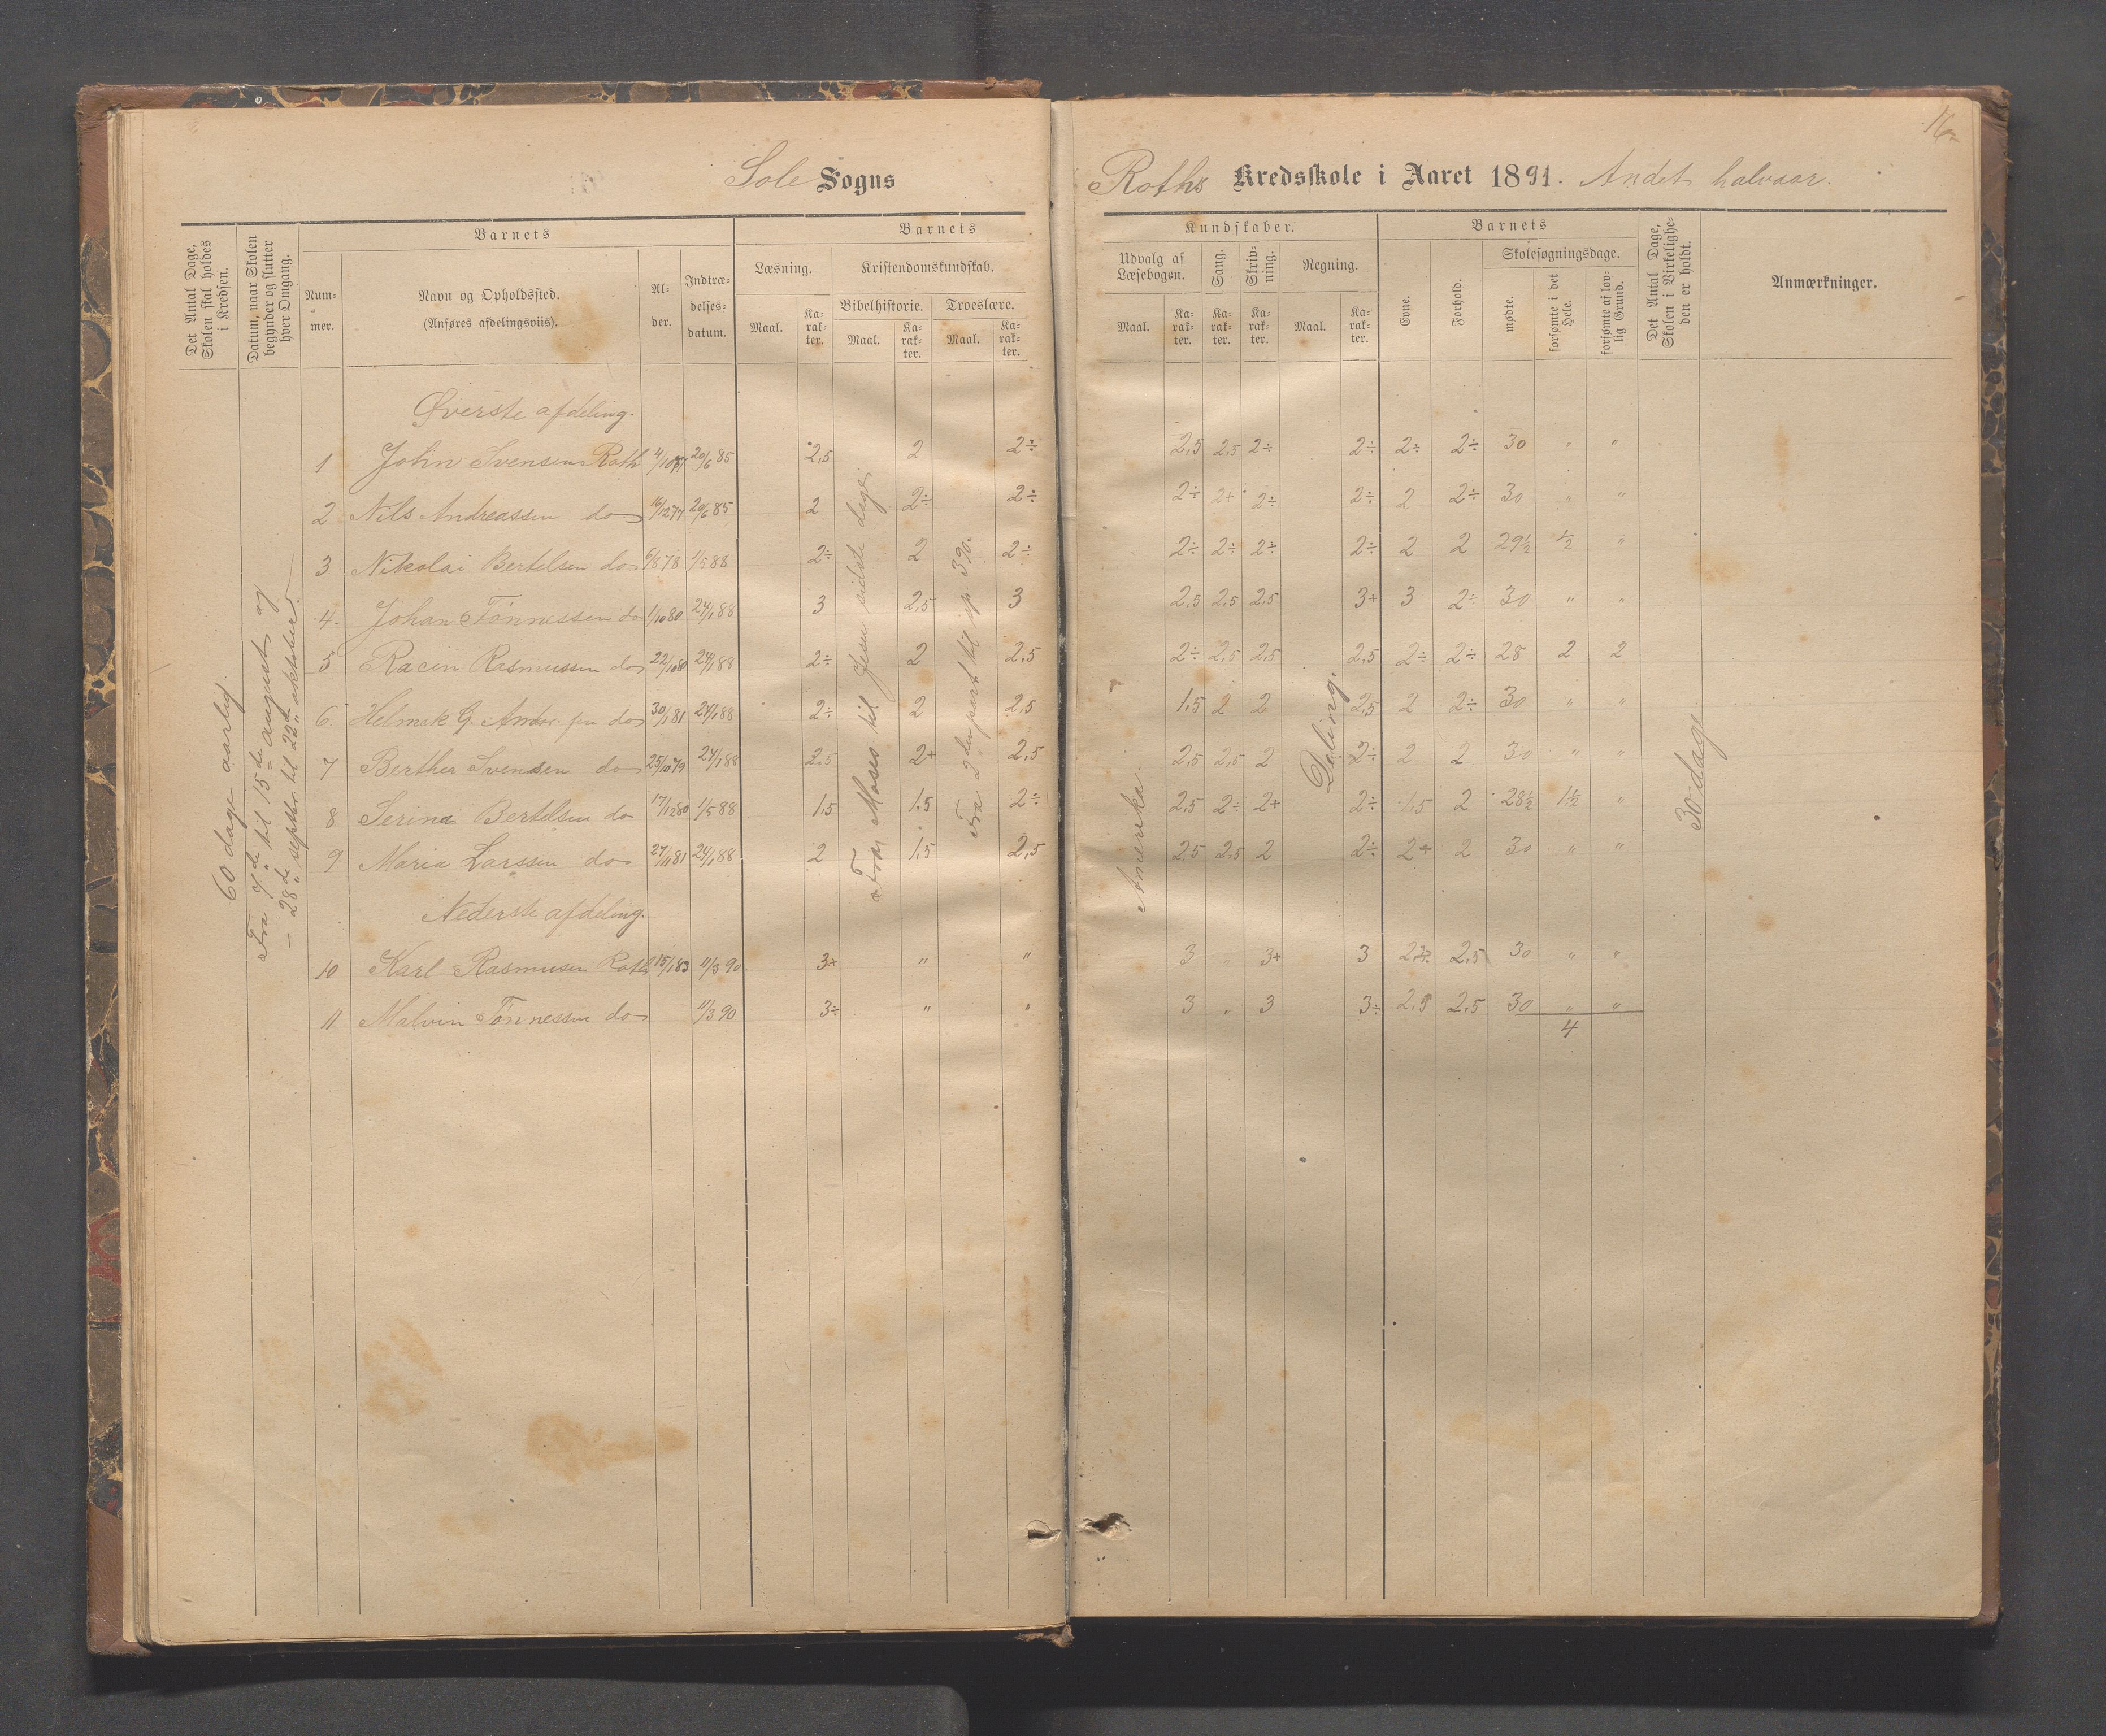 Sole Sogns
Roths Kredsskole i Aaret 1891. Andet halvaar.
Det Antal Dage, Skolen skal holdes i Kredsen.
Datum, naar Skolen begynder og slutter hver Omgang.
Barnets
Nummer.
Navn og Opholdssted.
(Anføres afdelingsviis).
Alder.
Indtrædelsesdatum.
Barnets
Læsning.
Maal.
Karakter.
Kristendomskundskab.
Bibelhistorie.
Maal.
Karakter.
Troeslære.
Maal.
Karakter.
Kundskaber.
Udvalg af Læsebogen.
Maal.
Karakter.
Sang.
Karakter.
Skrivning.
Karakter.
Regning.
Maal.
Karakter.
Barnets
Evne.
Forhold.
Skolesøgningsdage.
mødte.
forsømte i det Hele.
forsømte af lovlig Grund.
Det Antal Dage, Skolen i Virkeligheden er holdt.
Anmærkninger.
60 dage aarlig.
Fra 7de til 15de august og
– 28de septbr. til 22de oktober.
Fra Moses til Jesu sidste dage
Fra 2den part til sp. 390.
Amerika.
Deling.
30 dage
Øverste afdeling.
1 John Svensen Roth 20/6 85 2,5 2 2÷ 2,5 2,5 2÷ 2÷ 2÷ 2÷ 30 " "
2 Nils Andreassen do 16/12 77 20/6 85 2 2÷ 2÷ 2÷ 2+ 2÷ 2÷ 2 2÷ 30 " "
3 Nikolai Bertelsen do 6/8 78 1/5 88 2÷ 2 2÷ 2÷ 2÷ 2÷ 2÷ 2 2 29½ ½ "
4. Johan Tønnessen do 1/10 80 24/1 88 3 2,5 3 2,5 2,5 2,5 3+ 3 2÷ 30 " "
5 Racin Rasmussen do 22/10 80 24/1 88 2÷ 2 2,5 2÷ 2,5 2,5 2,5 2÷ 2÷ 28 2 2
6. Helmik G. do 30/1 81 24/1 88 2÷ 2 2,5 1,5 2 2 2,5 2 2÷ 30 " "
7 Berthe Svendsen do 25/10 79 24/1 88 2,5 2+ 2,5 2,5 2,5 2 2÷ 2 2 30 " "
8 Serina Bertelsen do 17/12 80 1/5 88 1,5 1,5 2÷ 2,5 2÷ 2+ 2÷ 1,5 2 28½ 1½ "
9 Maria Larssen do 24/1 88 2 1,5 2,5 2,5 2,5 2 2÷ 2+ 2 30 " "
Nederste afdeling.
10 Karl Rasmusen Roth 15/1 83 11/3 90 3+ " " 3 " 3+ 3 2,5 30 " "
11 Malvin Tønnessen do 11/3 90 3÷ " " 3 " 3 3÷ 2,5 2,5 30 " "
4